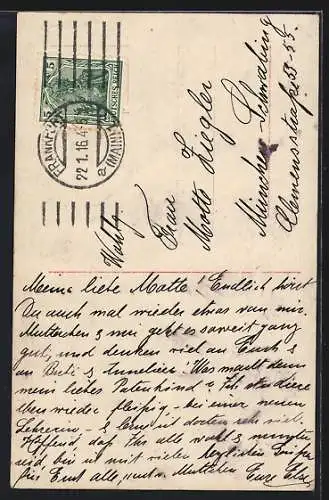 5
DEUTSCHES REICH
FRANKFURT
(MAIN)
22.1.16.4
a
Frau
Motte Ziegler
München-Schwabing
Clemensstraße 53-55
Meine liebe Motte! Endlich hörst
Du auch mal wieder etwas von mir.
Mutterchen & mir geht es soweit ganz
gut, und denken viel an Euch &
an & Anneliese. Was macht denn
mein liebes Patenkind? Ich studiere
eben wieder fleißig - bei einer neuen
Lehrerin - & lerne ich sehr viel.
Hoffend, daß Ihr alle wohl & munter
seid, bin ich mit vielen herzlichen Grüßen
für Euch alle, Eure Else